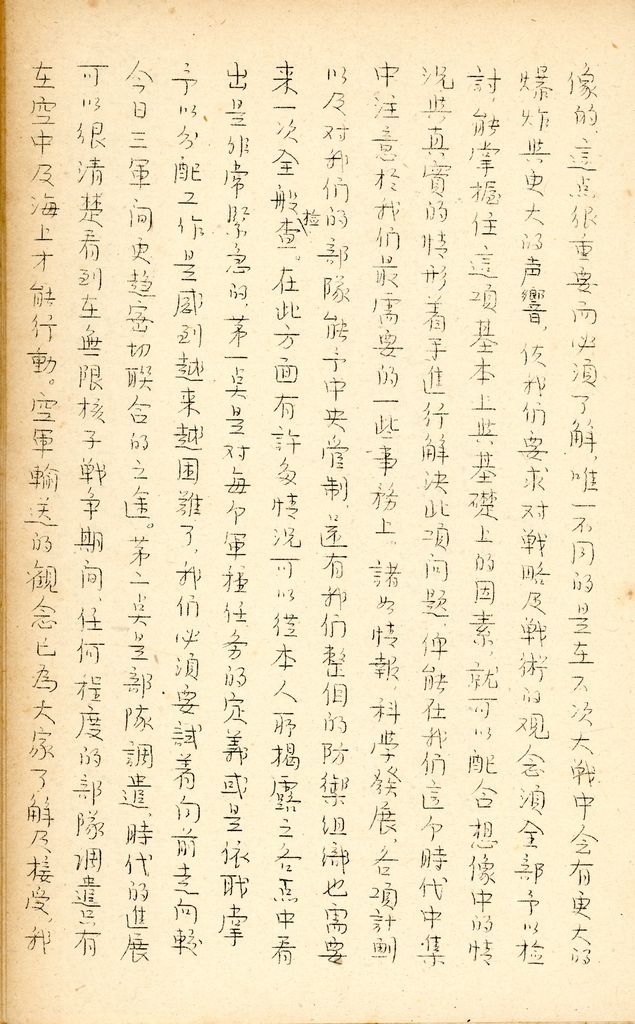 像的、這点很重要而必須了解，唯一不同的是在下次大戰中会有更大的
爆炸與更大的声響，依我们要求对戰略及戰術的观念須全部予以檢
討，能掌握住這項基本上與基礎上的因素，就可以配合想像中的情
況與真實的情形着手進行解決此項问題，俾能在我们這个時代中集
中注意於我们最需要的一些事務上。諸如情報，科學發展，各項計劃
以及对我们的部隊能予中央管制，還有我们整個的防禦組織也需要
来一次全般檢查。在此方面有許多情況可以從本人所揭露之各点中看
出是非常緊急的，第一点是对每个軍種任务的定義或是依职掌
予以分配工作是感到越来越困難了，我们必須要試着向前走向較
今日三軍间更趋密切联合的之途。第二点是部隊調遣，時代的進展
可以很清楚看到在無限核子戰争期间，任何程度的部隊调遣只有
在空中及海上才能行動。空軍輸送的觀念已為大家了解及接受，我